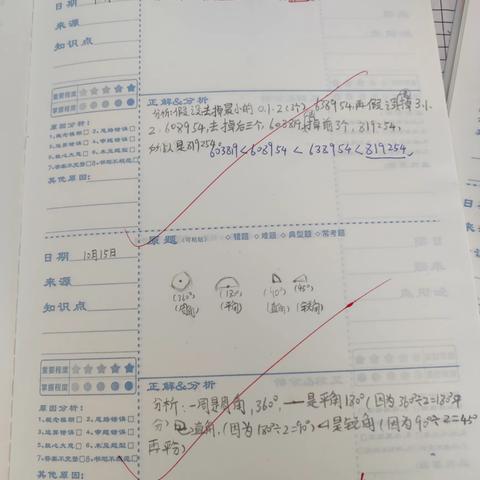 日期
来源
知识点
重要程度 ★★★★★
掌握程度
原因分析：
1、概念模糊□ 2、思路错误□
3、运算错误□ 4、审题错误□
5、粗心大意□ 6、未见题型□
7、答案不完整□ 8、书写不规范□
其他原因：
正解&分析
分析:假设去掉最小的 0.1.2(3个), 638954,再假设掉3.1.
2. 608954,去掉后三个, 603819,掉前3个, 819254,
所以是819254。
603819<608954 < 638954 < 819254
原题（可粘贴） ◇错题 ◇难题 ◇典型题 ◇常考题
日期 10月15日
来源
知识点
(360°) (180°) (90°) (45°)
(周角) (平角) (直角) (锐角)
重要程度 ★★★★★
掌握程度
原因分析：
1、概念模糊□ 2、思路错误□
3、运算错误□ 4、审题错误□
5、粗心大意□ 6、未见题型□
7、答案不完整□ 8、书写不规范□
其他原因：
正解&分析
分析:一周是周角,360°, 是平角180°(因为360°÷2=180°平
分) 直角,(因为180°÷2=90°) 是锐角(因为90°÷2=45°
再平分)